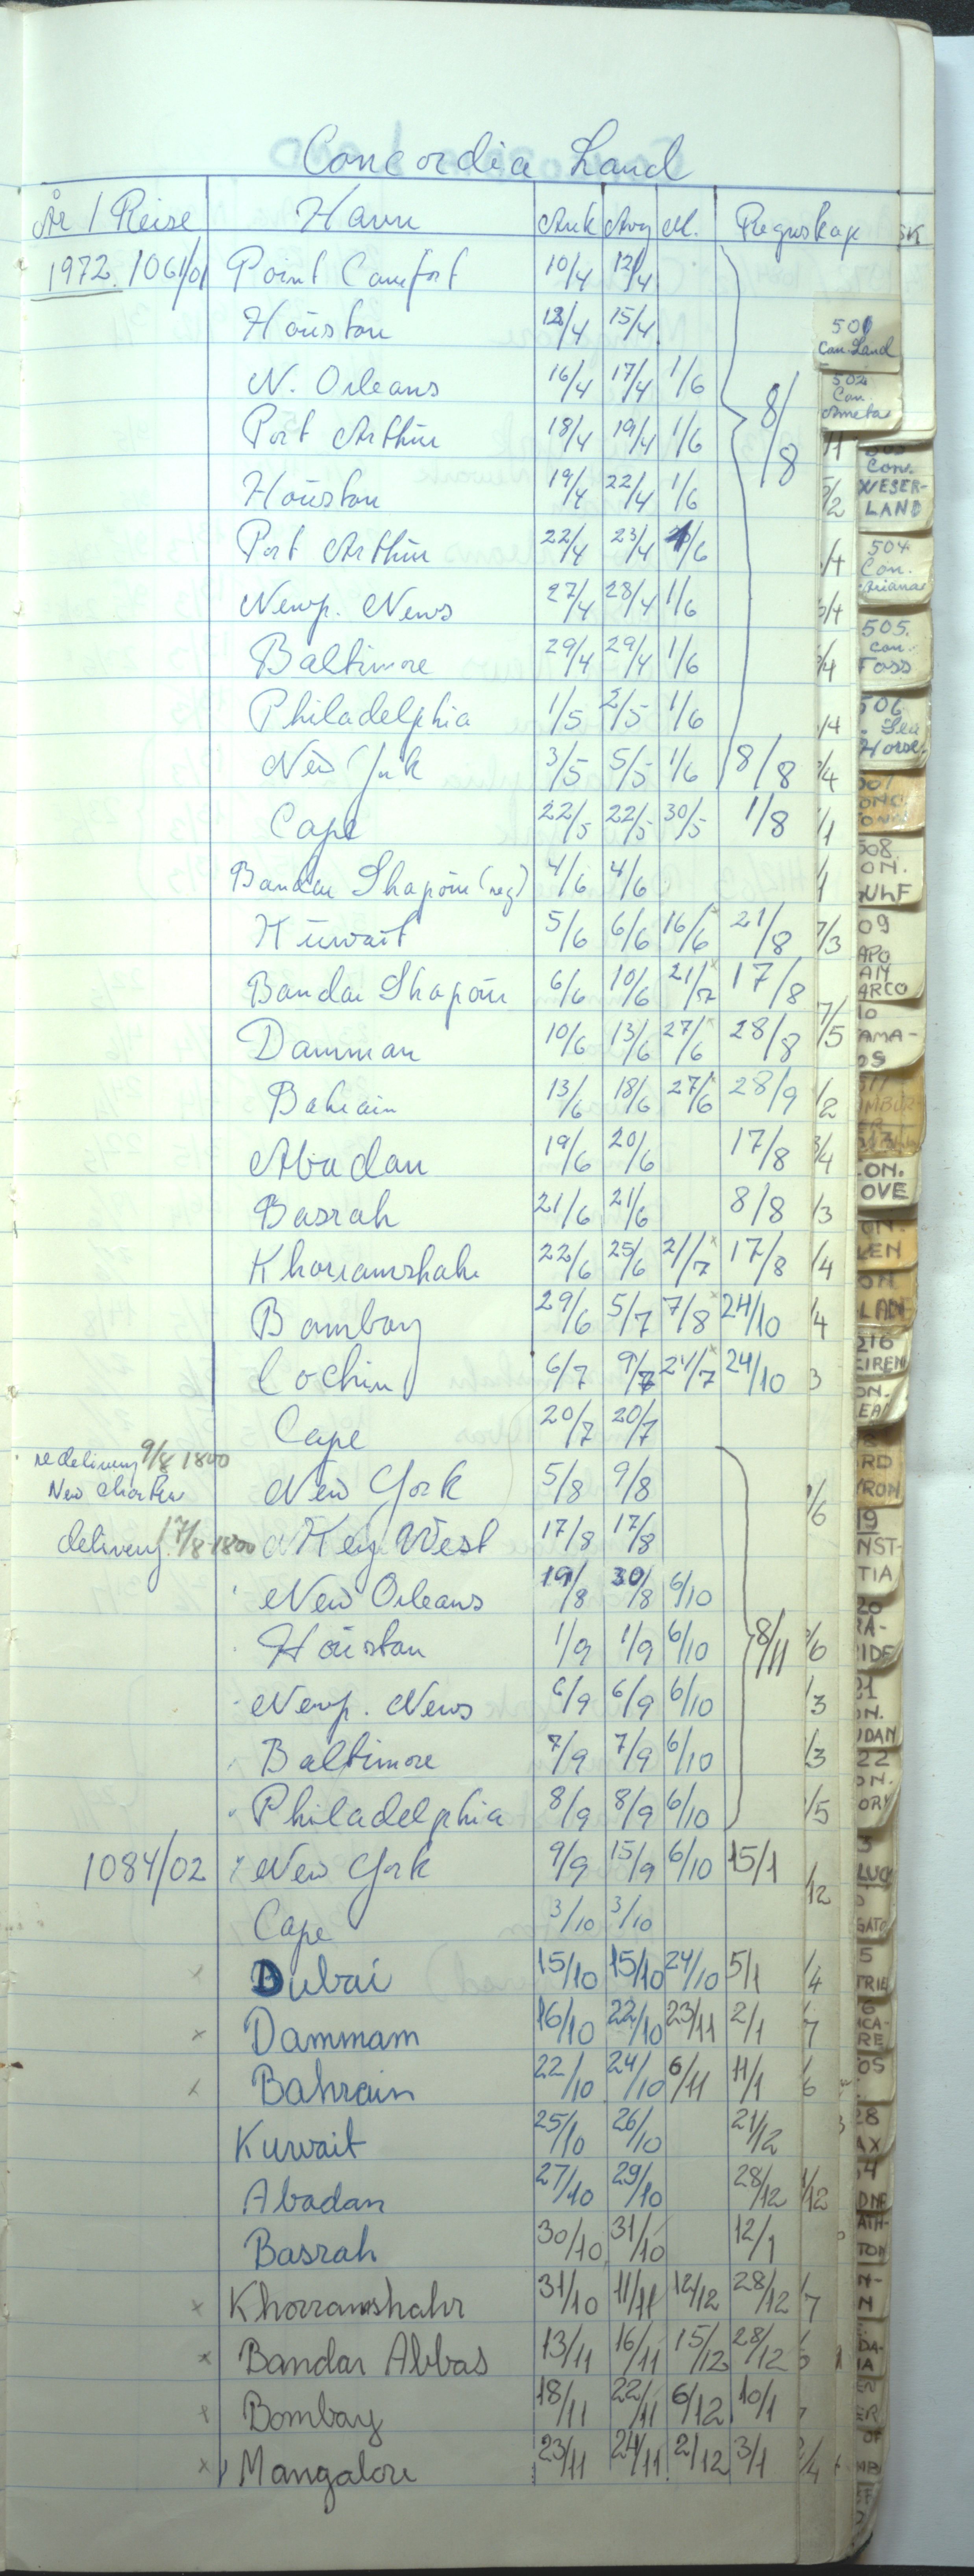 Concordia Land
År / Reise Havn Ank Avg M. Regnskap SK
1972. 1061/01 Point Comfort 10/4 12/4
Houston 12/4 15/4
N. Orleans 16/4 17/4 1/6
Port Arthur 18/4 19/4 1/6 8/8
Houston 19/4 22/4 1/6
Port Arthur 22/4 23/4 1/6
Newp. News 27/4 28/4 1/6
Baltimore 29/4 29/4 1/6
Philadelphia 1/5 2/5 1/6
New York 3/5 5/5 1/6 8/8
Cape 22/5 22/5 30/5 1/8
Bandar Shapour (neg) 4/6 4/6
Kuwait 5/6 6/6 16/6 21/8
Bandar Shapour 6/6 10/6 21/7 17/8
Damman 10/6 13/6 27/6 28/8
Bahrain 13/6 18/6 27/6 28/9
Abadan 19/6 20/6 17/8
Basrah 21/6 21/6 8/8
Khorramshahr 22/6 25/6 21/7 17/8
Bombay 29/6 5/7 7/8 24/10
Cochin 6/7 9/7 24/7 24/10
Cape 20/7 20/7
redelivery 9/8 1800
New charter New York 5/8 9/8
delivery 17/8 1800 Key West 17/8 17/8
New Orleans 19/8 30/8 6/10
Houston 1/9 1/9 6/10 8/11
Newp. News 6/9 6/9 6/10
Baltimore 7/9 7/9 6/10
Philadelphia 8/9 8/9 6/10
1084/02 New York 9/9 15/9 6/10 15/1
Cape 3/10 3/10
Dubai 15/10 15/10 24/10 5/1
x Dammam 16/10 22/10 23/11 2/1
Bahrain 22/10 24/10 6/11 11/1
Kuwait 25/10 26/10 21/12
Abadan 27/10 29/10 28/12
Basrah 30/10 31/10 12/1
x Khorramshahr 31/10 11/11 12/12 28/12
x Bandar Abbas 13/11 16/11 15/12 28/12
x Bombay 18/11 22/11 6/12 10/1
x Mangalore 23/11 24/11 2/12 3/1
501
Con. Land
502
Con.
Ameta
Con.
WESER-
LAND
504
Con.
505.
Con.
Foss
506
Sea
Horse